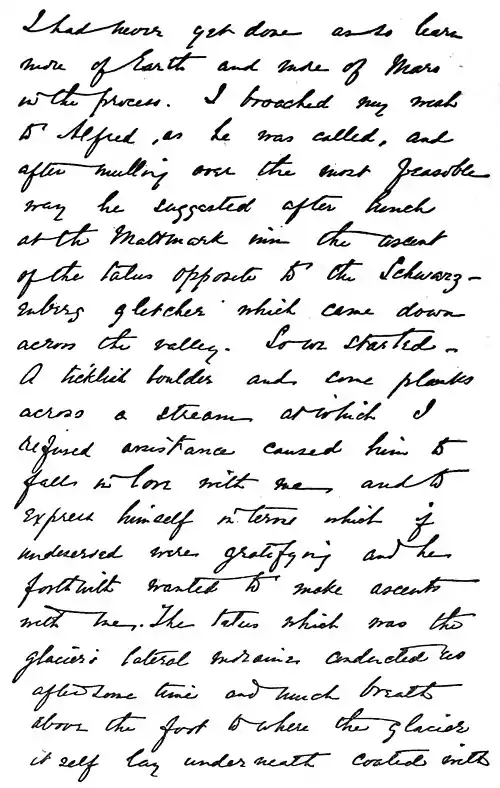 I had never yet done so as to learn
more of Earth and more of Mars
in the process. I broached my wish
to Alfred, as he was called, and
after mulling over the most feasible
way he suggested after lunch
at the Mattmark inn the ascent
of the talus opposite to the Schwarz-
enberg gletcher which came down
across the valley. So we started.
A ticklish boulder and some planks
across a stream at which I
refused assistance caused him to
fall in love with me, and to
express himself in terms which if
undeserved were gratifying and he
forthwith wanted to make ascents
with me. The talus which was the
glacier's lateral moraines conducted us
after some time and much breath
above the foot to where the glacier
itself lay underneath coated with